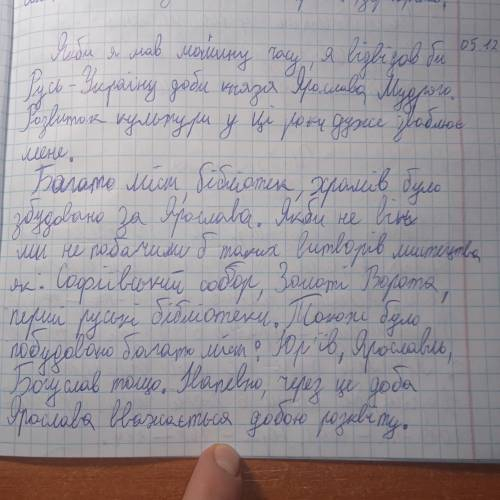 05.12
Якби я мав машину часу, я відвідав би
Русь-Україну доби князя Ярослава Мудрого.
Розвиток культури у ці роки дуже зваблює
мене.
Багато міст, бібліотек, храмів було
збудовано за Ярослава. Якби не він
ми не побачили б таких витворів мистецтва
як: Софіївський собор, Золоті Ворота,
перші руські бібліотеки. Також було
побудовано багато міст: Юр'їв, Ярославль,
Богуслав тощо. Напевно, через це доба
Ярослава вважається добою розквіту.